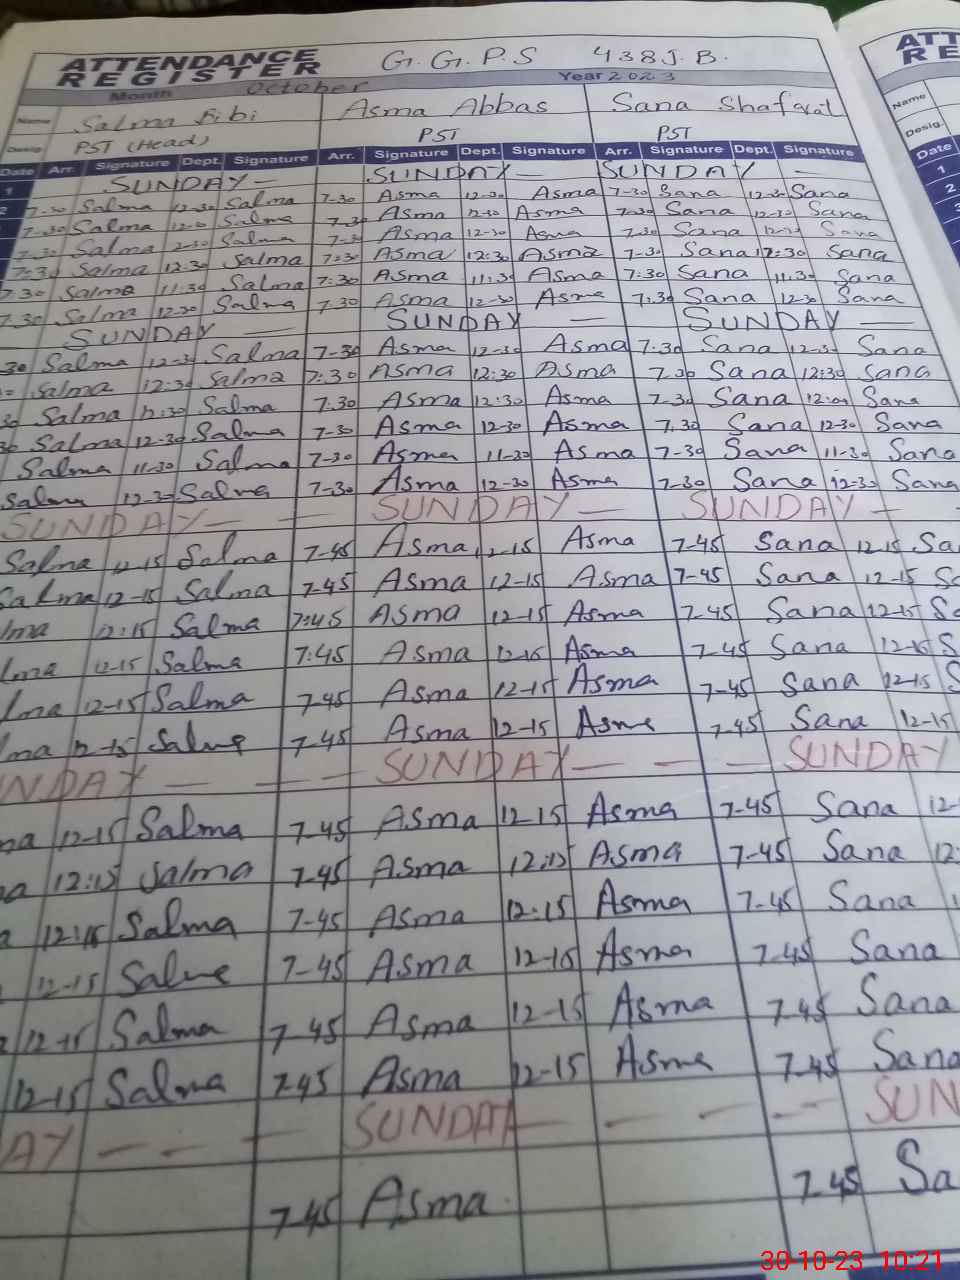 ATTENDANCE REGISTER G.G.P.S 438 J.B. ATT
RE
Month October Year 2023
Name Salma Bibi Asma Abbas Sana Shafaqat Name
Desig. PST (Head) PST PST Desig.
Date Arr. Signature Dept. Signature Arr. Signature Dept. Signature Arr. Signature Dept. Signature Date
1 SUNDAY — SUNDAY — SUNDAY — 1
2 7-30 Salma 12-30 Salma 7-30 Asma 12-30 Asma 7-30 Sana 12-30 Sana 2
7-30 Salma Salma 7-30 Asma 12-30 Asma 7-30 Sana 12-30 Sana 3
7-30 Salma Salma 7-30 Asma 12-30 Asma 7-30 Sana Sana
7:30 Salma 12:30 Salma 7:30 Asma 12:30 Asma 7-30 Sana 12:30 Sana
7.30 Salma 11:30 Salma 7:30 Asma 11:30 Asma 7:30 Sana 11:30 Sana
7.30 Salma 12-30 Salma 7.30 Asma 12-30 Asma 7.30 Sana 12-30 Sana
SUNDAY — SUNDAY — SUNDAY —
30 Salma 12-30 Salma 7-30 Asma 12-30 Asma 7-30 Sana 12-30 Sana
Salma 12:30 Salma 7:30 Asma 12:30 Asma 7.30 Sana 12:30 Sana
30 Salma 12:30 Salma 7.30 Asma 12:30 Asma 7-30 Sana Sana
30 Salma 12-30 Salma 7-30 Asma 12-30 Asma 7.30 Sana 12-30 Sana
Salma 11-30 Salma 7-30 Asma 11-30 Asma 7-30 Sana 11-30 Sana
Salma 12-30 Salma 7-30 Asma 12-30 Asma 7-30 Sana 12-30 Sana
SUNDAY — — SUNDAY — SUNDAY —
Salma 12-15 Salma 7-45 Asma 12-15 Asma 7-45 Sana 12-15 Sa
Salma 12-15 Salma 7-45 Asma 12-15 Asma 7-45 Sana 12-15 Sa
lma 12:15 Salma 7:45 Asma 12-15 Asma 7-45 Sana 12-15 Sa
lma 12-15 Salma 7:45 Asma 12-15 Asma 7-45 Sana 12-15 S
lma 12-15 Salma 7-45 Asma 12-15 Asma 7-45 Sana 12-15 S
ma 12-15 Salma 7-45 Asma 12-15 Asma 7-45 Sana 12-15
NDAY — — — SUNDAY — — — SUNDAY
na 12-15 Salma 7-45 Asma 12-15 Asma 7-45 Sana 12-
a 12:15 Salma 7-45 Asma 12:15 Asma 7-45 Sana 12:
a 12:15 Salma 7-45 Asma 12:15 Asma 7-45 Sana
12-15 Salma 7-45 Asma 12-15 Asma 7-45 Sana
a 12-15 Salma 7-45 Asma 12-15 Asma 7-45 Sana
12-15 Salma 7-45 Asma 12-15 Asma 7-45 Sana
AY — — — SUNDAY — — — — SUN
7-45 Asma 7-45 Sa
30-10-23 10:21